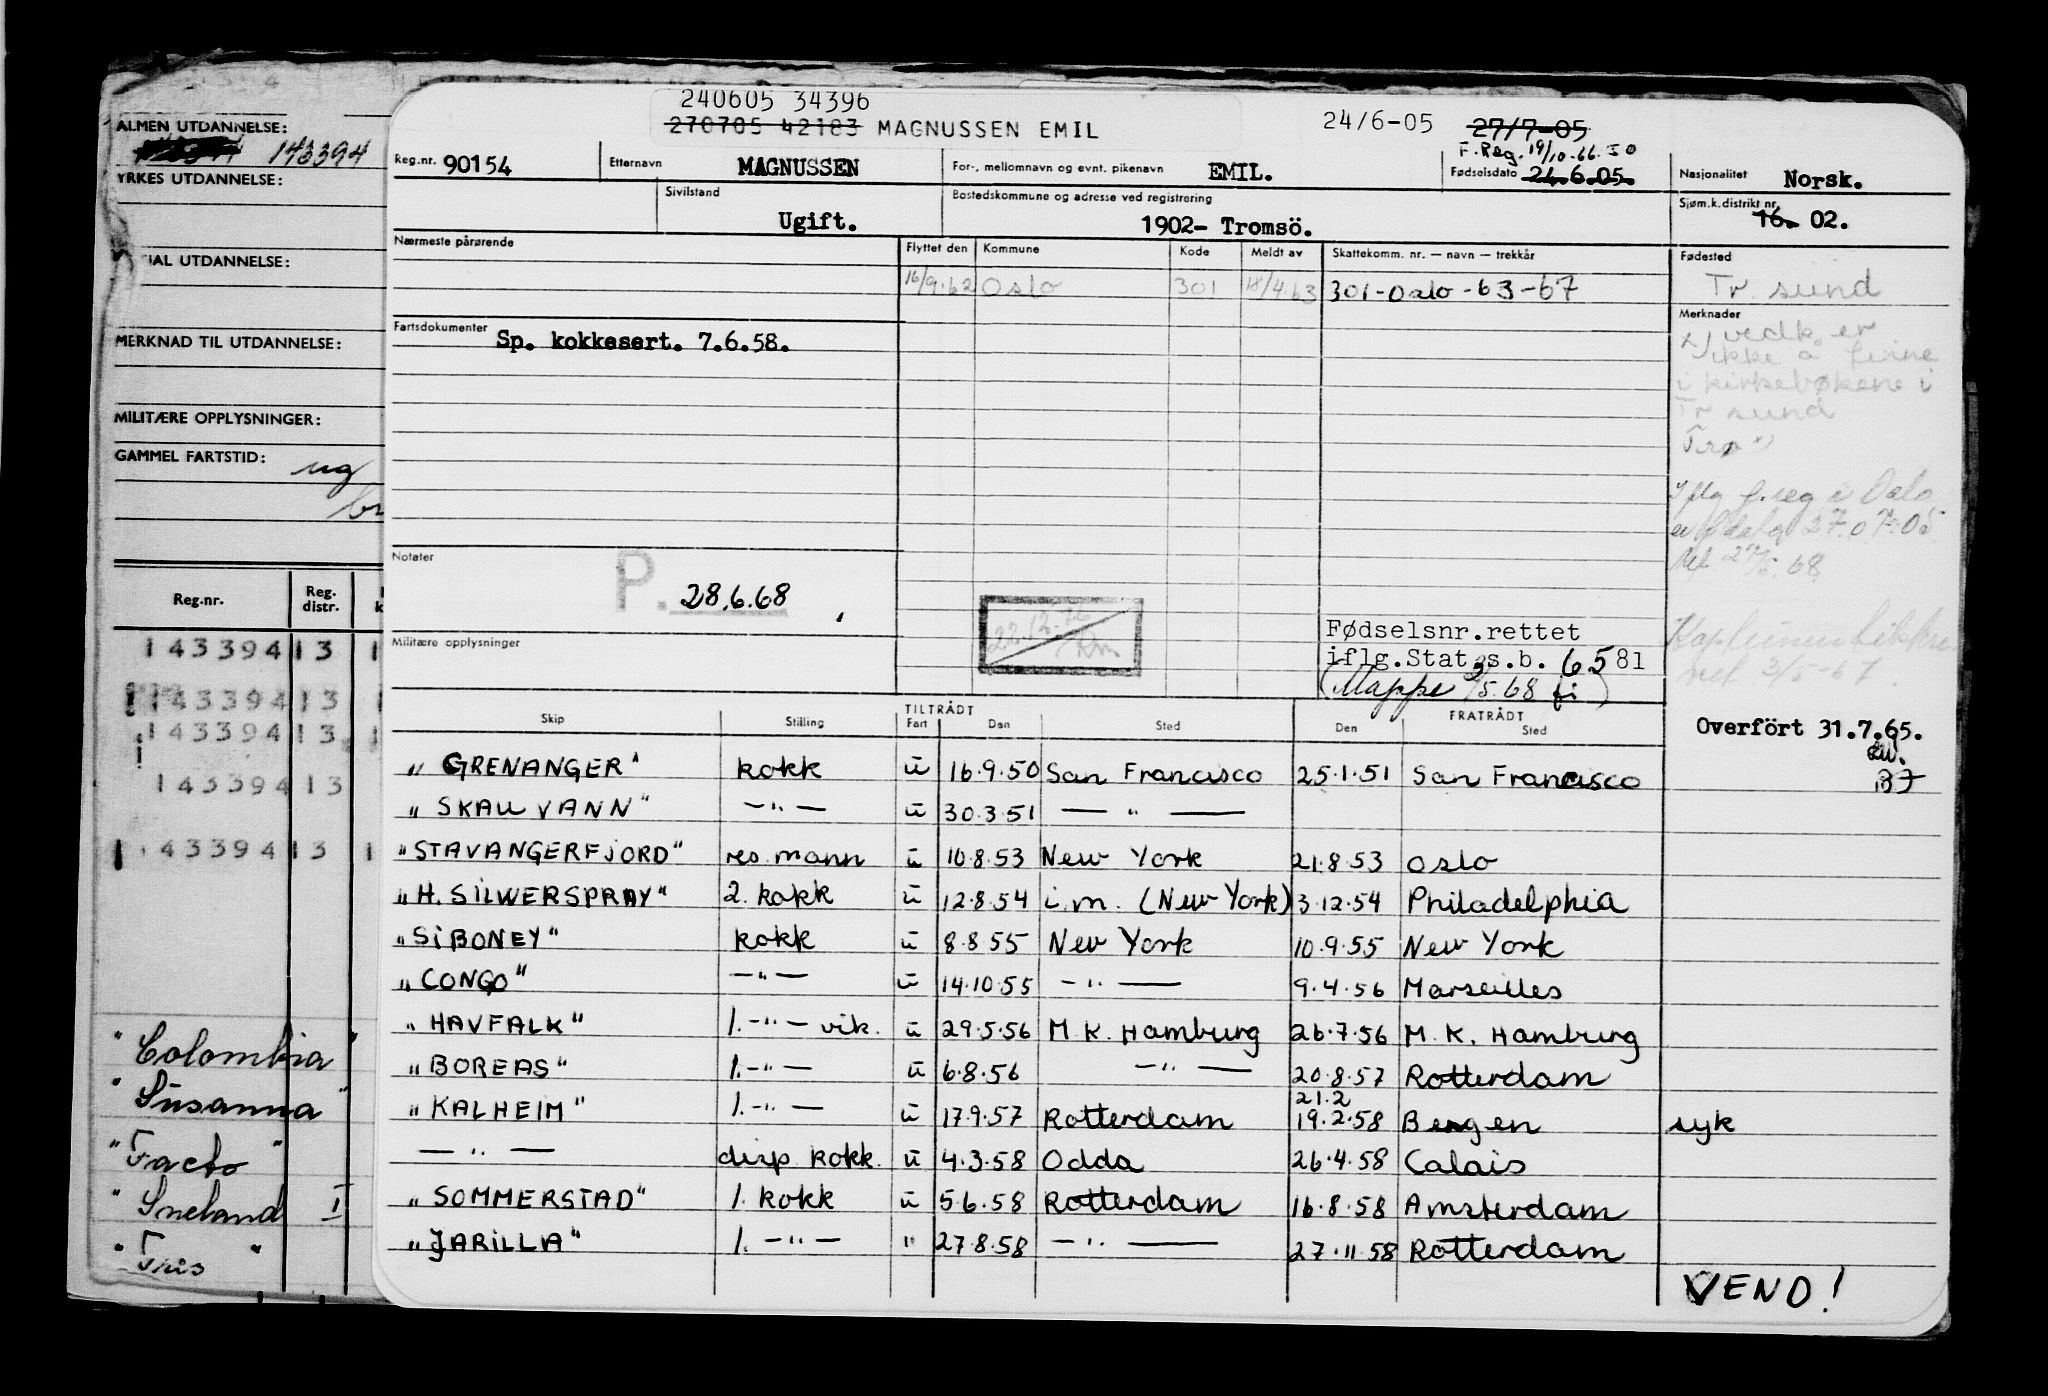 ALMEN UTDANNELSE:
143394
YRKES UTDANNELSE:
IAL UTDANNELSE:
MERKNAD TIL UTDANNELSE:
MILITÆRE OPPLYSNINGER:
GAMMEL FARTSTID:
ug
Reg.nr. Reg. distr.
143394 13 1
143394 13
143394 13
143394 13
43394 13 1
"Colombia"
"Susanna"
"Facto"
"Sneland I
"Tris"
240605 34396
270705 42183 MAGNUSSEN EMIL 24/6-05 27/7-05
F.Reg. 19/10-66.50
Reg.nr. 90154 Etternavn MAGNUSSEN For-, mellomnavn og evnt. pikenavn EMIL. Fødselsdato 24.6.05. Nasjonalitet Norsk.
Sivilstand Ugift. Bostedskommune og adresse ved registrering 1902- Tromsö. Sjøm.k.distrikt nr. 16. 02.
Nærmeste pårørende Flyttet den Kommune Kode Meldt av Skattekomm. nr. — navn — trekkår Fødested
16/9.62 Oslo 301 18/4.63 301-Oslo-63-67 Tr. sund
Fartsdokumenter Sp. kokkesert. 7.6.58. Merknader
vedk. er
ikke å finne
i kirkebøkene i
Tr sund
Iflg f.reg i Oslo
27.07.05
Notater P. 28.6.68
Militære opplysninger
22.12.76
Fødselsnr.rettet
iflg.Stat.s.b. 6581
(Mappe 3/5.68 fi)
3/5-67.
Skip Stilling TILTRÅDT Fart Den Sted FRATRÅDT Den Sted Overfört 31.7.65.
"GRENANGER" kokk u 16.9.50 San Francisco 25.1.51 San Francisco
"SKAUVANN" —"— u 30.3.51 — " —
"STAVANGERFJORD" res. mann u 10.8.53 New York 21.8.53 Oslo
"H. SILWERSPRAY" 2. kokk u 12.8.54 i.m. (New York) 3.12.54 Philadelphia
"SIBONEY" kokk u 8.8.55 New York 10.9.55 New York
"CONGO" —"— u 14.10.55 —"— 9.4.56 Marseilles
"HAVFALK" 1.—"— vik. u 29.5.56 M.K. Hamburg 26.7.56 M.K. Hamburg
"BOREAS" 1.—"— u 6.8.56 —"— 20.8.57 Rotterdam
21.2
"KALHEIM" 1.—"— u 17.9.57 Rotterdam 19.2.58 Bergen syk
— " — disp kokk. u 4.3.58 Odda 26.4.58 Calais
"SOMMERSTAD" 1. kokk u 5.6.58 Rotterdam 16.8.58 Amsterdam
"JARILLA" 1.—"— " 27.8.58 —"— 27.11.58 Rotterdam
VEND!